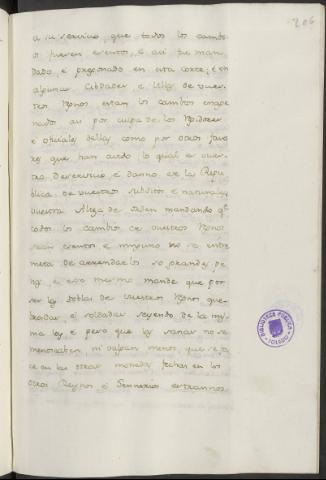 206
a su servicio, que todos los cambi
os fuesen esentos, e asi fue man
dado, e pregonado en esta corte; e en
algunas Cibdades, e Villas de vues-
tros Rgnos estan los cambios enage
nados asi por culpa de los Regidores
e oficiales dellas como por otros favo
res que han avido lo qual es vues-
tro deservicio, e danno de la Repu
blica de vuestros subditos e naturales
vuestra Alteza de orden mandando qe
todos los cambios de vuestros Rgnos
sean esentos e ninguno no se entre
meta de arrendarlos so grandes pe
nas e eso mesmo mande que por
ser las doblas de vuestros Rgnos que-
bradas, e soldadas seyendo de la mis
ma ley e pero que las sanas no se
menoscaben ni valgan menos que se fa
ce en las otras monedas fechas en los
otros Reynos e Sennorios estrannos
BIBLIOTECA PUBLICA
TOLEDO